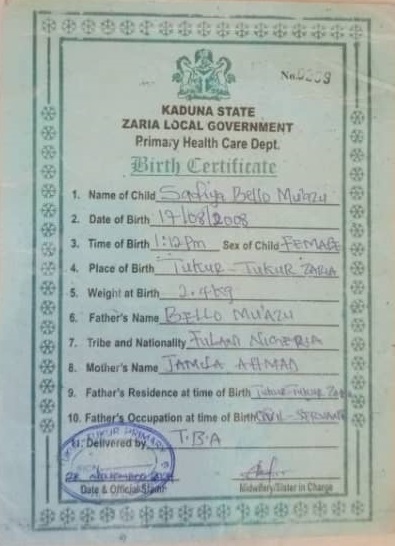 No.0269
KADUNA STATE
ZARIA LOCAL GOVERNMENT
Primary Health Care Dept.
Birth Certificate
1. Name of Child Sadiya Bello Mu'azu
2. Date of Birth 19/08/2008
3. Time of Birth 1:12pm Sex of Child FEMALE
4. Place of Birth TUKUR-TUKUR ZARIA
5. Weight at Birth 2.4kg
6. Father's Name BELLO MU'AZU
7. Tribe and Nationality FULANI NIGERIA
8. Mother's Name JAMILA AHMAD
9. Father's Residence at time of Birth TUKUR-TUKUR
10. Father's Occupation at time of Birth CIVIL-SERVANT
11. Delivered by T.B.A
TUKUR PRIMARY
Date & Official Stamp Midwifery/Sister in Charge